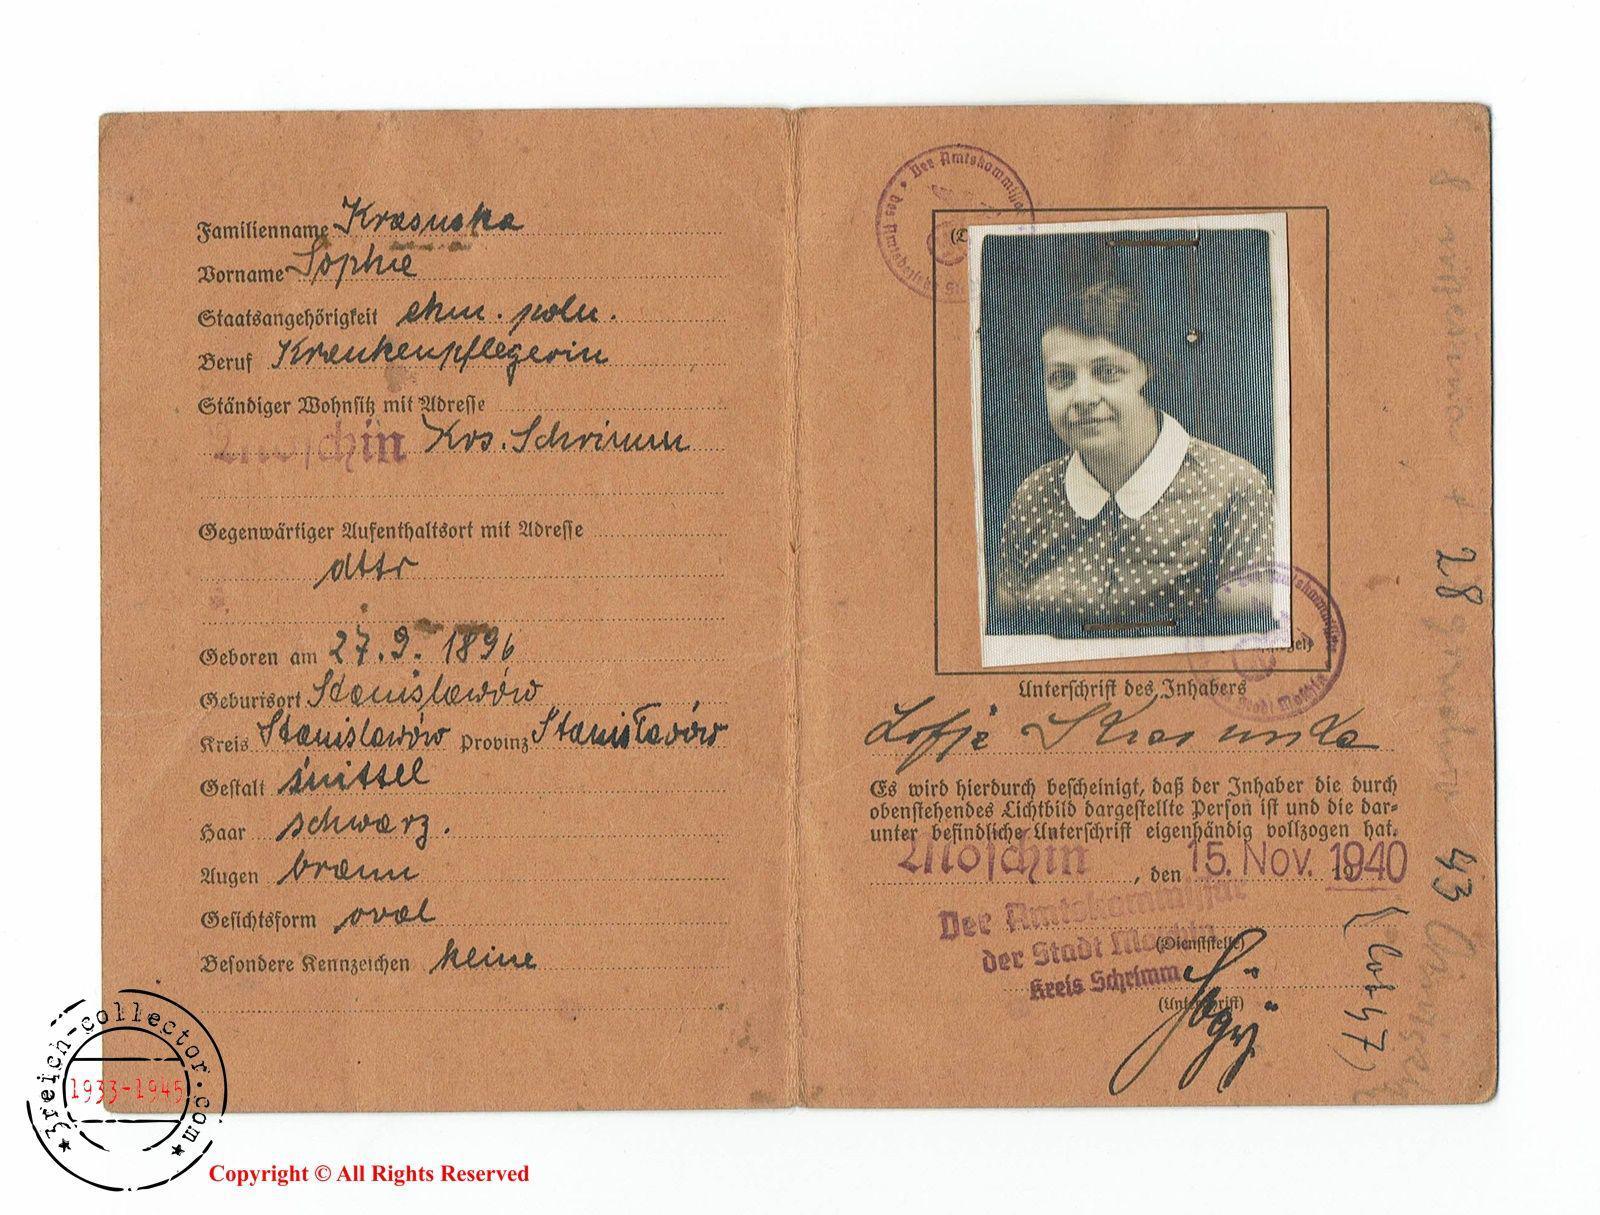 Familienname Krasuska
Vorname Sophie
Staatsangehörigkeit ehm. poln.
Beruf Krankenpflegerin
Ständiger Wohnsitz mit Adresse
Moschin Krs. Schrimm
Gegenwärtiger Aufenthaltsort mit Adresse
dtto
Geboren am 27.9.1896
Geburtsort Stanislawów
Kreis Stanislawów Provinz Stanisławów
Gestalt mittel
Haar schwarz.
Augen braun
Gesichtsform oval
Besondere Kennzeichen keine
Der Amtskommissar
des Amtsbezirks
Unterschrift des Inhabers
Zofja Krasuska
Es wird hierdurch bescheinigt, daß der Inhaber die durch
obenstehendes Lichtbild dargestellte Person ist und die dar-
unter befindliche Unterschrift eigenhändig vollzogen hat.
Moschin, den 15. Nov. 1940
Der Amtskommissar
der Stadt Moschin
(Dienststelle)
Kreis Schrimm
(Unterschrift)
28 grudnia 43
(lat 47)
3reich-collector.com
1933-1945
Copyright © All Rights Reserved